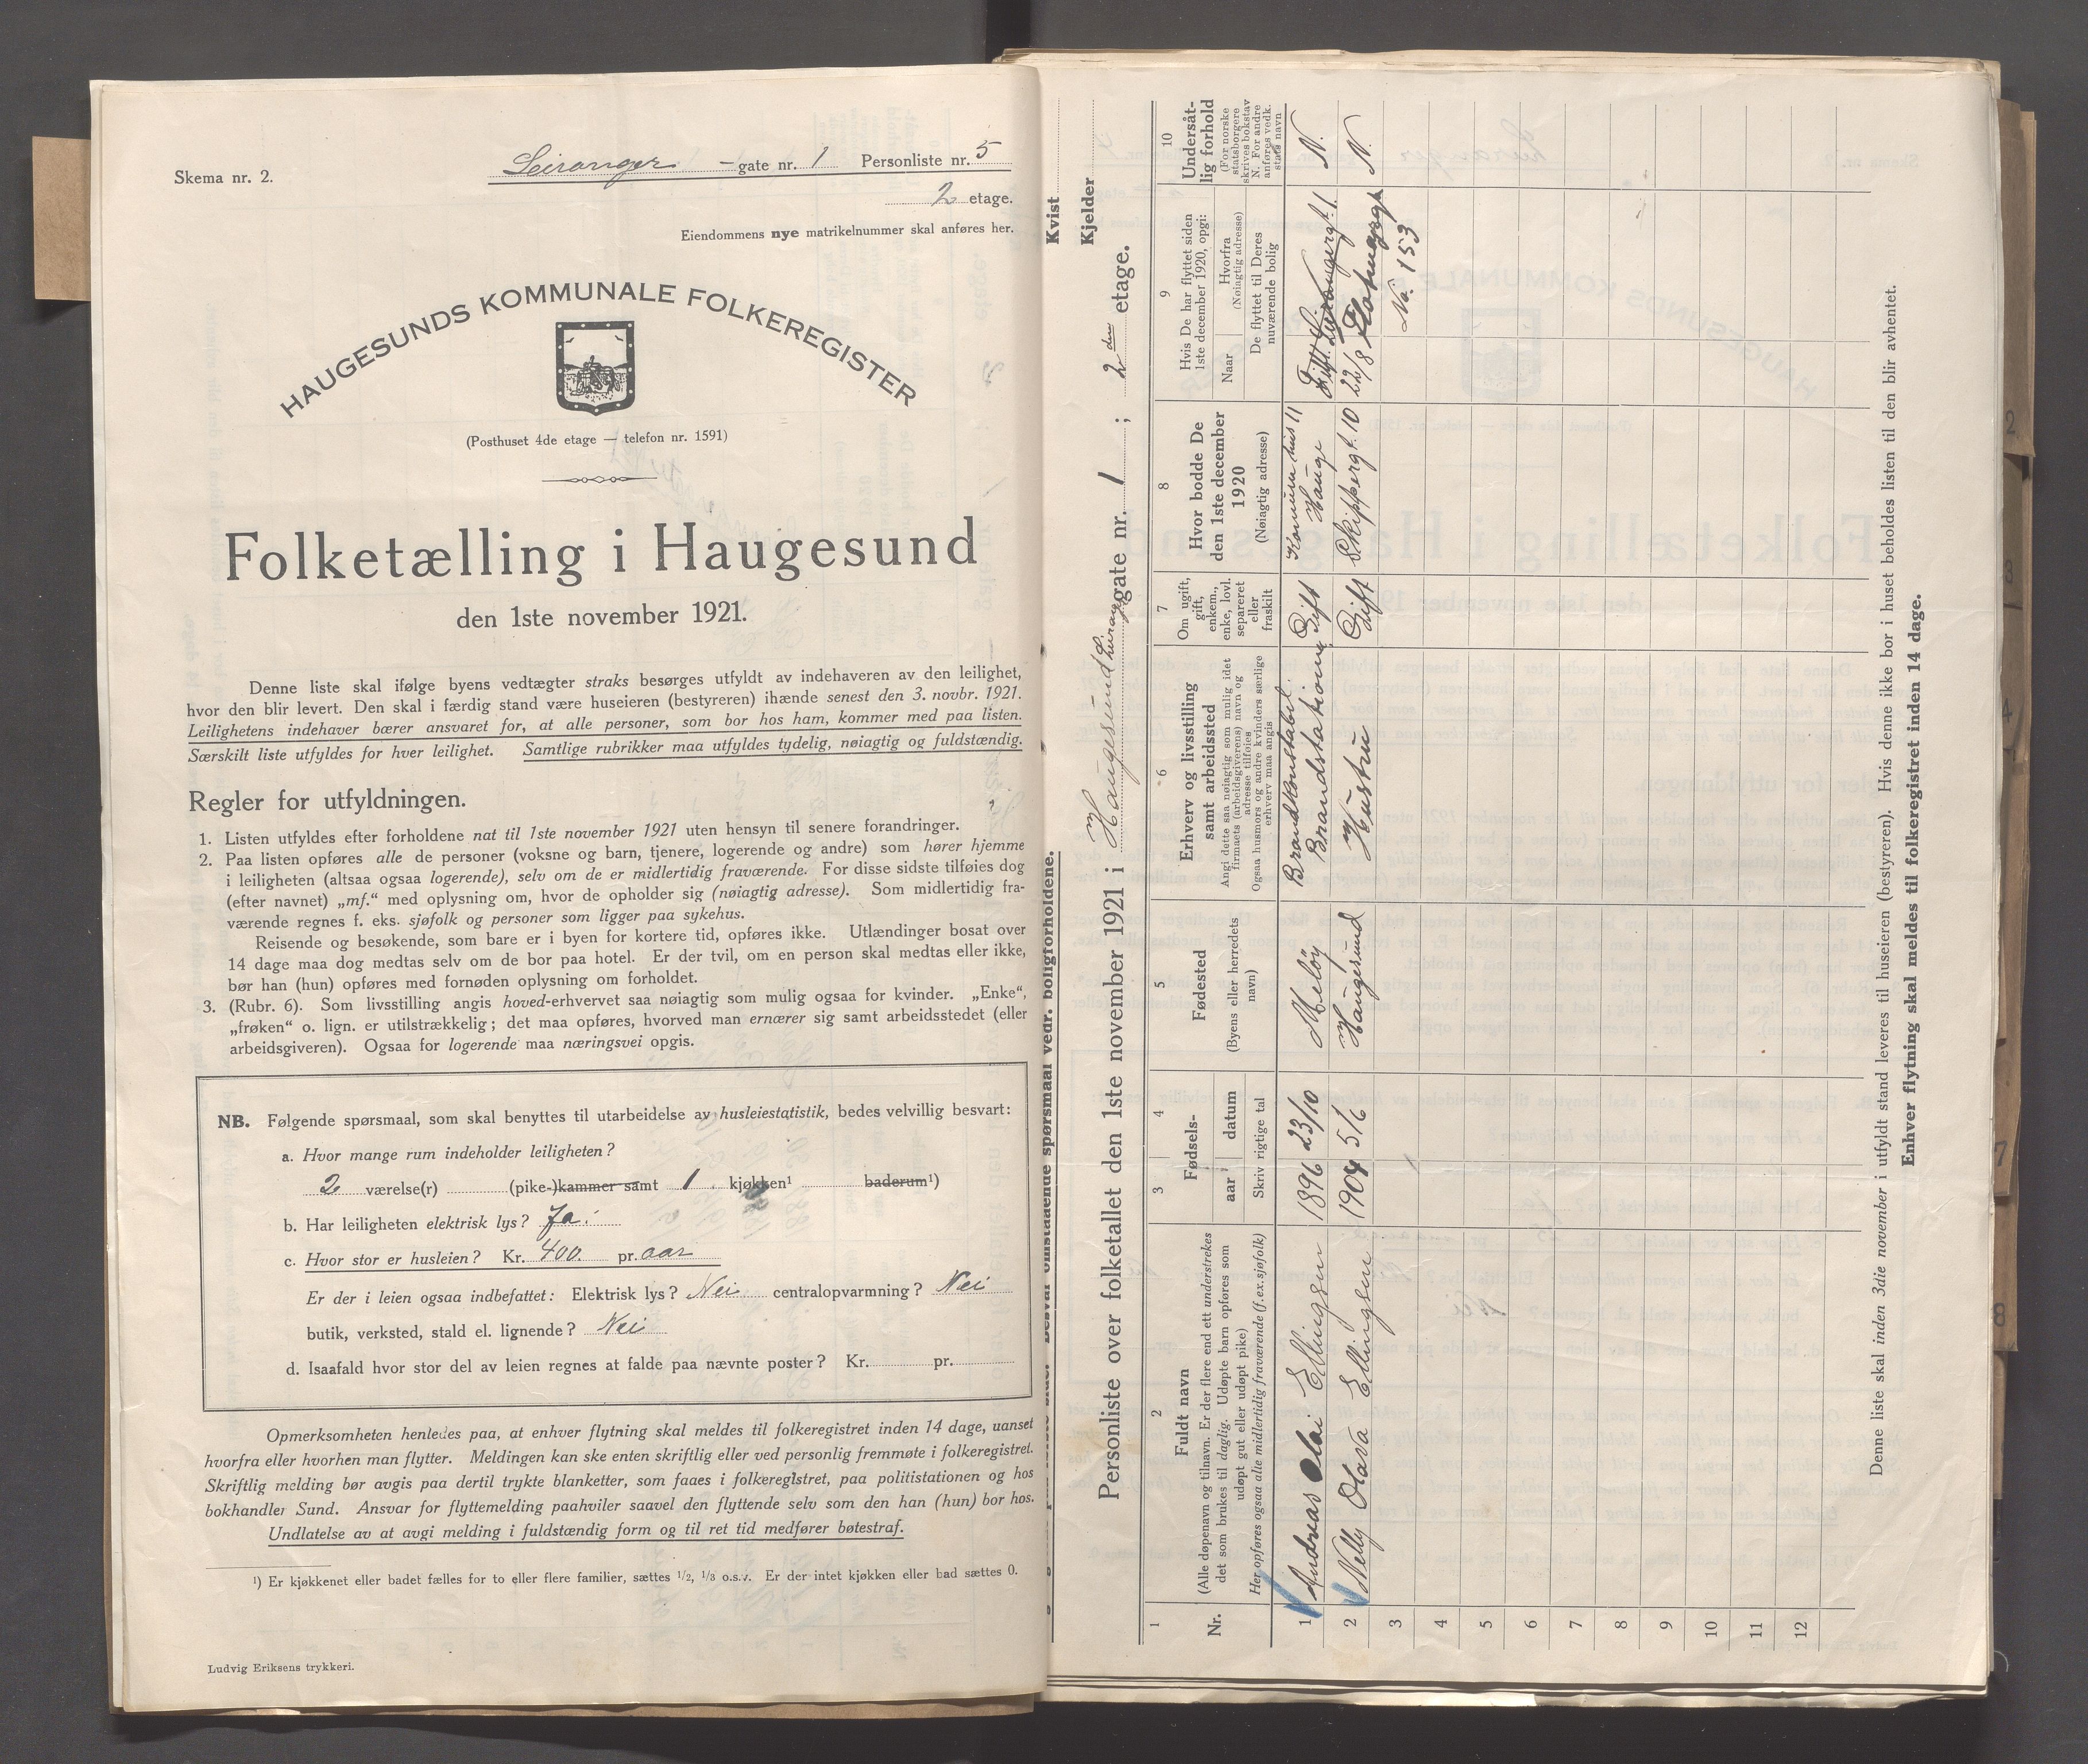 Skema nr. 2.
Leiranger -gate nr. 1 Personliste nr. 5
2 etage.
Eiendommens nye matrikelnummer skal anføres her.
HAUGESUNDS KOMMUNALE FOLKEREGISTER
(Posthuset 4de etage — telefon nr. 1591)
Folketælling i Haugesund
den 1ste november 1921.
Denne liste skal ifølge byens vedtægter straks besørges utfyldt av indehaveren av den leilighet,
hvor den blir levert. Den skal i færdig stand være huseieren (bestyreren) ihænde senest den 3. novbr. 1921.
Leilighetens indehaver bærer ansvaret for, at alle personer, som bor hos ham, kommer med paa listen.
Særskilt liste utfyldes for hver leilighet. Samtlige rubrikker maa utfyldes tydelig, nøiagtig og fuldstændig.
Regler for utfyldningen.
1. Listen utfyldes efter forholdene nat til 1ste november 1921 uten hensyn til senere forandringer.
2. Paa listen opføres alle de personer (voksne og barn, tjenere, logerende og andre) som hører hjemme
i leiligheten (altsaa ogsaa logerende), selv om de er midlertidig fraværende. For disse sidste tilføies dog
(efter navnet) „mf.“ med oplysning om, hvor de opholder sig (nøiagtig adresse). Som midlertidig fra-
værende regnes f. eks. sjøfolk og personer som ligger paa sykehus.
Reisende og besøkende, som bare er i byen for kortere tid, opføres ikke. Utlændinger bosat over
14 dage maa dog medtas selv om de bor paa hotel. Er der tvil, om en person skal medtas eller ikke,
bør han (hun) opføres med fornøden oplysning om forholdet.
3. (Rubr. 6). Som livsstilling angis hoved-erhvervet saa nøiagtig som mulig ogsaa for kvinder. „Enke“,
„frøken“ o. lign. er utilstrækkelig; det maa opføres, hvorved man ernærer sig samt arbeidsstedet (eller
arbeidsgiveren). Ogsaa for logerende maa næringsvei opgis.
NB. Følgende spørsmaal, som skal benyttes til utarbeidelse av husleiestatistik, bedes velvillig besvart:
a. Hvor mange rum indeholder leiligheten?
2 værelse(r) (pike-)kammer samt 1 kjøkken¹ baderum¹)
b. Har leiligheten elektrisk lys? Ja.
c. Hvor stor er husleien? Kr. 400. pr. aar
Er der i leien ogsaa indbefattet: Elektrisk lys? Nei centralopvarmning? Nei
butik, verksted, stald el. lignende? Nei
d. Isaafald hvor stor del av leien regnes at falde paa nævnte poster? Kr. pr.
Opmerksomheten henledes paa, at enhver flytning skal meldes til folkeregistret inden 14 dage, uanset
hvorfra eller hvorhen man flytter. Meldingen kan ske enten skriftlig eller ved personlig fremmøte i folkeregistret.
Skriftlig melding bør avgis paa dertil trykte blanketter, som faaes i folkeregistret, paa politistationen og hos
bokhandler Sund. Ansvar for flyttemelding paahviler saavel den flyttende selv som den han (hun) bor hos.
Undlatelse av at avgi melding i fuldstændig form og til ret tid medfører bøtestraf.
¹) Er kjøkkenet eller badet fælles for to eller flere familier, sættes 1/2, 1/3 o.s.v. Er der intet kjøkken eller bad sættes 0.
Ludvig Eriksens trykkeri.
Besvar omstaaende spørsmaal vedr. boligforholdene.
Kvist
Kjelder
Personliste over folketallet den 1ste november 1921 i Haugesund Leirangergate nr. 1 ; 2den etage.
1 2 3 4 5 6 7 8 9 10
Nr.
Fuldt navn
(Alle døpenavn og tilnavn. Er der flere end ett understrekes
det som brukes til daglig. Udøpte barn opføres som
udøpt gut eller udøpt pike)
Her opføres ogsaa alle midlertidig fraværende (f.ex.sjøfolk)
Fødsels-
aar datum
Skriv rigtige tal
Fødested
(Byens eller herredets
navn)
Erhverv og livsstilling
samt arbeidssted
Angi dette saa nøiagtig som mulig idet
firmaets (arbeidsgiverens) navn og
adresse tilføies
Ogsaa husmors og andre kvinders særlige
erhverv maa angis
Om ugift,
gift,
enkem.,
enke, lovl.
separeret
eller
fraskilt
Hvor bodde De
den 1ste december
1920
(Nøiagtig adresse)
Hvis De har flyttet siden
1ste december 1920, opgi:
Naar
Hvorfra
(Nøiagtig adresse)
De flyttet til Deres
nuværende bolig
Undersåt-
lig forhold
(For norske
statsborgere
skrives bokstav
N. For andre
anføres vedk.
stats navn
1 Andreas Olai Ellingsen 1896 23/10 Meløy Brandkonstabel. Brandstationen Gift Komunehus 11 Hauge N.
2 Nelly Olava Ellingsen 1904 5/6 Haugesund Hustru Gift Skippergt. 10 22/8 No. 153 N.
3
4
5
6
7
8
9
10
11
12
Denne liste skal inden 3die november i utfyldt stand leveres til huseieren (bestyreren). Hvis denne ikke bor i huset beholdes listen til den blir avhentet.
Enhver flytning skal meldes til folkeregistret inden 14 dage.